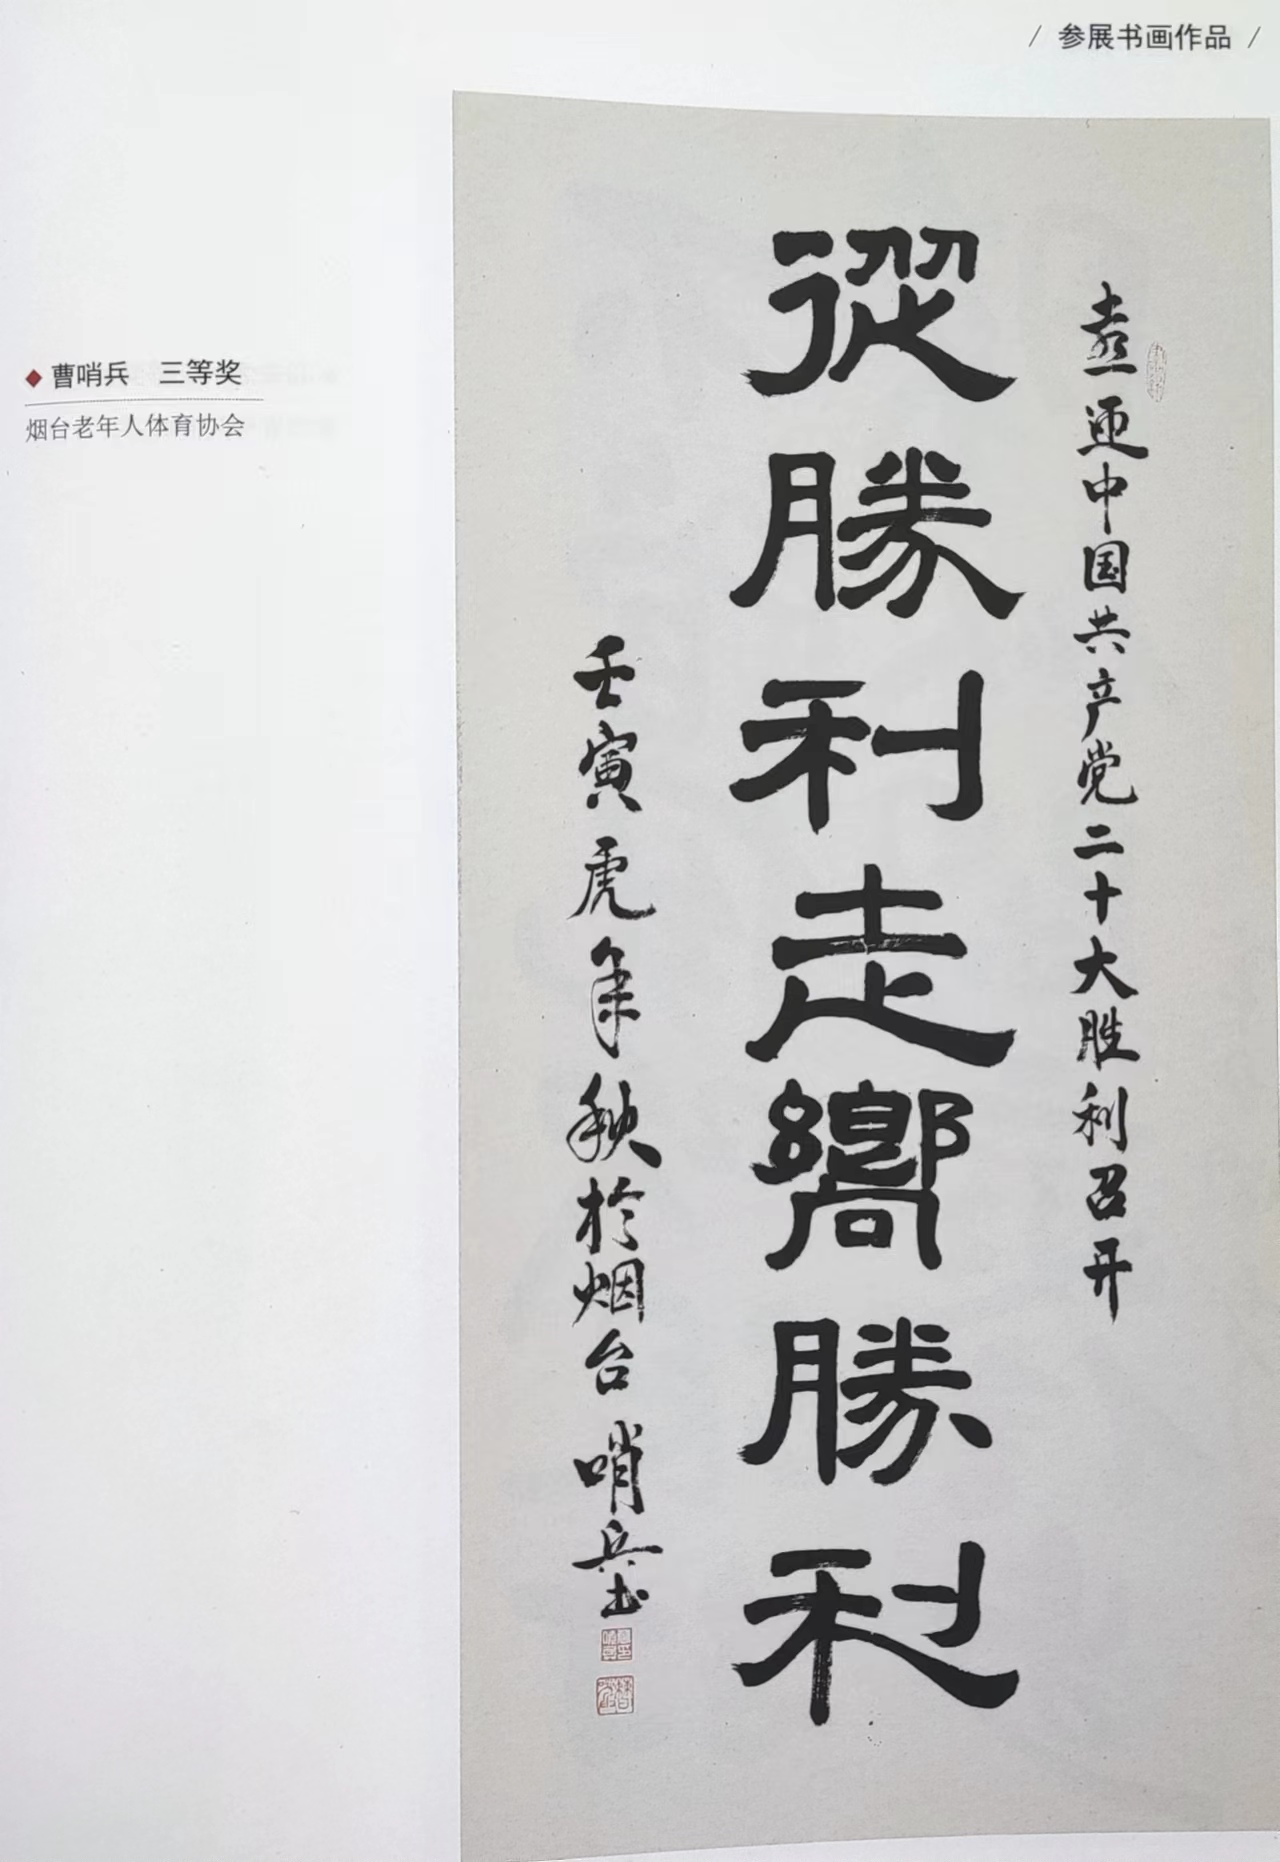 / 参展书画作品 /
◆ 曹哨兵 三等奖
烟台老年人体育协会
喜迎中国共产党二十大胜利召开
從勝利走嚮勝利
壬寅虎年秋於烟台哨兵书